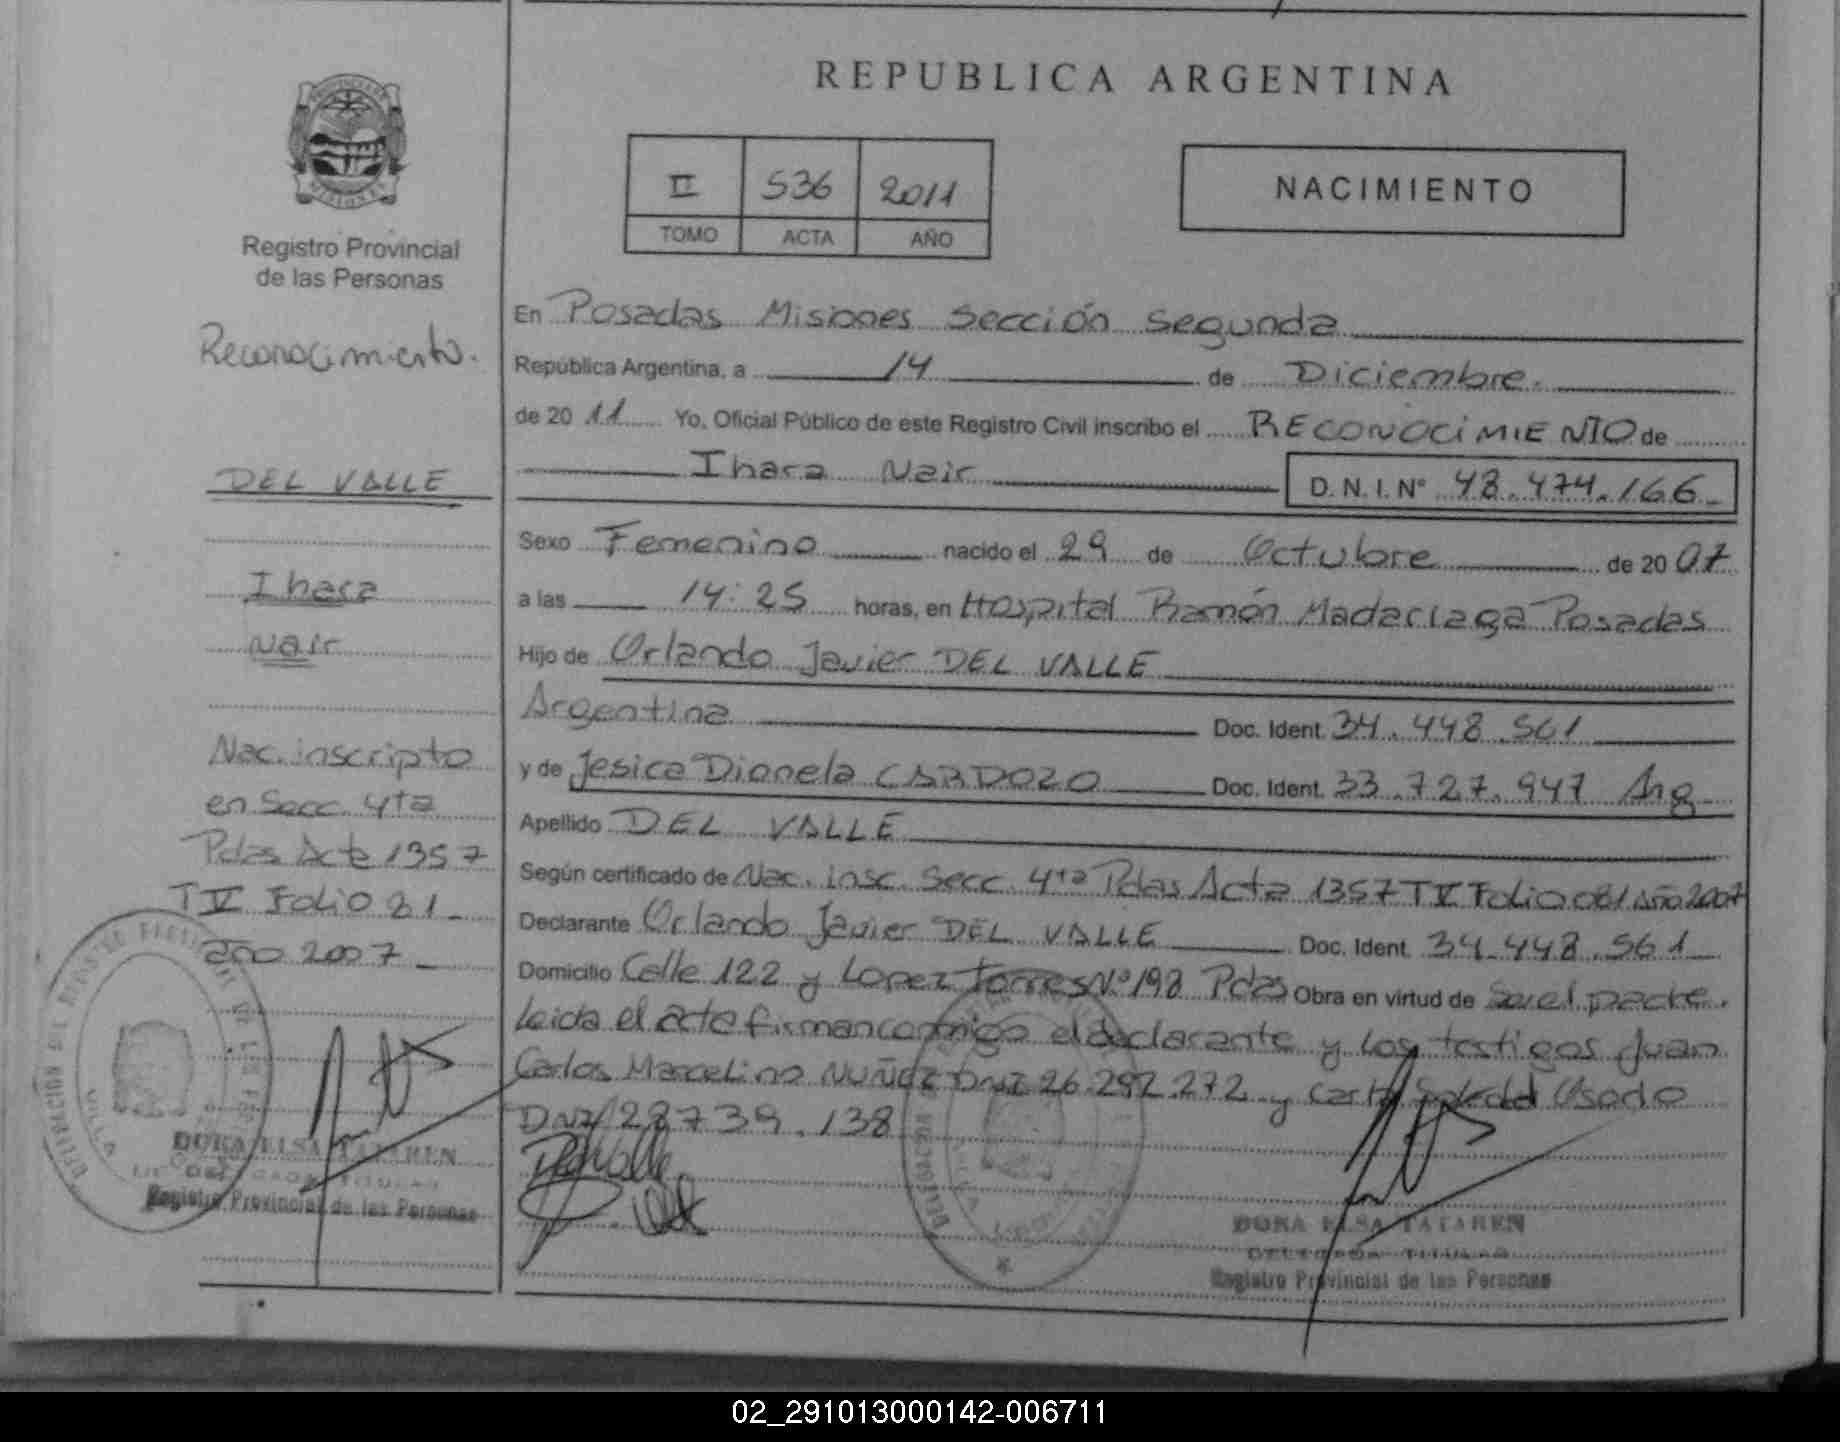 REPUBLICA ARGENTINA
PROVINCIA DE
MISIONES
Registro Provincial
de las Personas
Reconocimiento.
DEL VALLE
Ihara
Nair
Nac. inscripto
en Secc. 4ta
Pdas Acta 1357
T IV Folio 81
año 2007
DORA ELSA TATAREN
Registro Provincial de las Personas
II 536 2011
TOMO ACTA AÑO
NACIMIENTO
En Posadas Misiones Sección Segunda
República Argentina, a 14 de Diciembre.
de 20 11 Yo, Oficial Público de este Registro Civil inscribo el RECONOCIMIENTO de
Ihara Nair D.N.I. N° 48.474.166
Sexo Femenino nacido el 29 de Octubre de 20 07
a las 14:25 horas, en Hospital Ramón Madariaga Posadas
Hijo de Orlando Javier DEL VALLE
Argentina Doc. Ident. 34.448.561
y de Jesica Dionela CARDOZO Doc. Ident. 33.727.947 Arg
Apellido DEL VALLE
Según certificado de Nac. insc. Secc. 4ta Pdas Acta 1357 T IV Folio 081 Año 2007
Declarante Orlando Javier DEL VALLE Doc. Ident. 34.448.561
Domicilio Calle 122 y Lopez Torres N° 198 Pdas Obra en virtud de Ser el padre.
Leida el acta firman conmigo el declarante y los testigos Juan
Carlos Marcelino NUÑEZ DNI 26.292.272 y Carla Soledad
DNI 28739.138
Del Valle
DORA ELSA TATAREN
DELEGADA TITULAR
Registro Provincial de las Personas
02_291013000142-006711